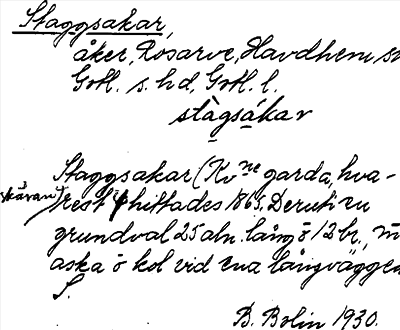 Staggsakar,
åker, Rosarve, Havdhem sn
Gotl. s. hd, Gotl. l.
stàgsákar
Staggsakar (Kv ne garda, hva-
rest hittades 1865. Deruti en
grundval 25 aln. lång ö 12 br.,
aska ö kol vid ena långväggen
S.
B. Bolin 1930.